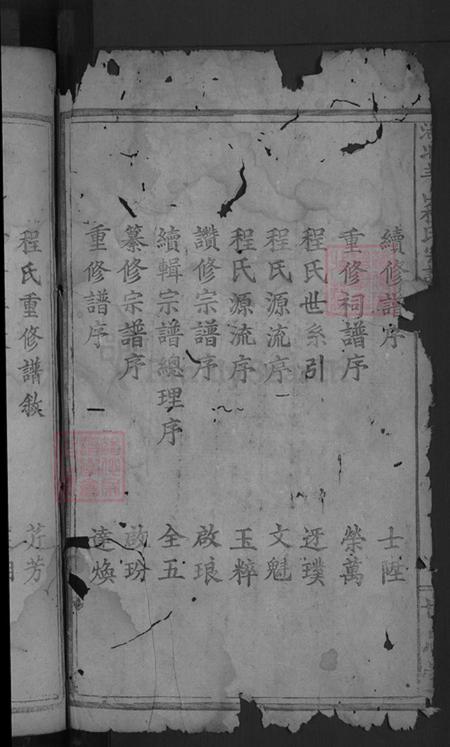 續修譜序 士陞
重修祠譜序 榮萬
程氏世系引 迓璞
程氏源流序 文魁
程氏源流序 玉粹
讚修宗譜序 啟琅
續輯宗譜總理序 全五
纂修宗譜序 啟玢
重修譜序 達煥
程氏重修譜敘 芹芳